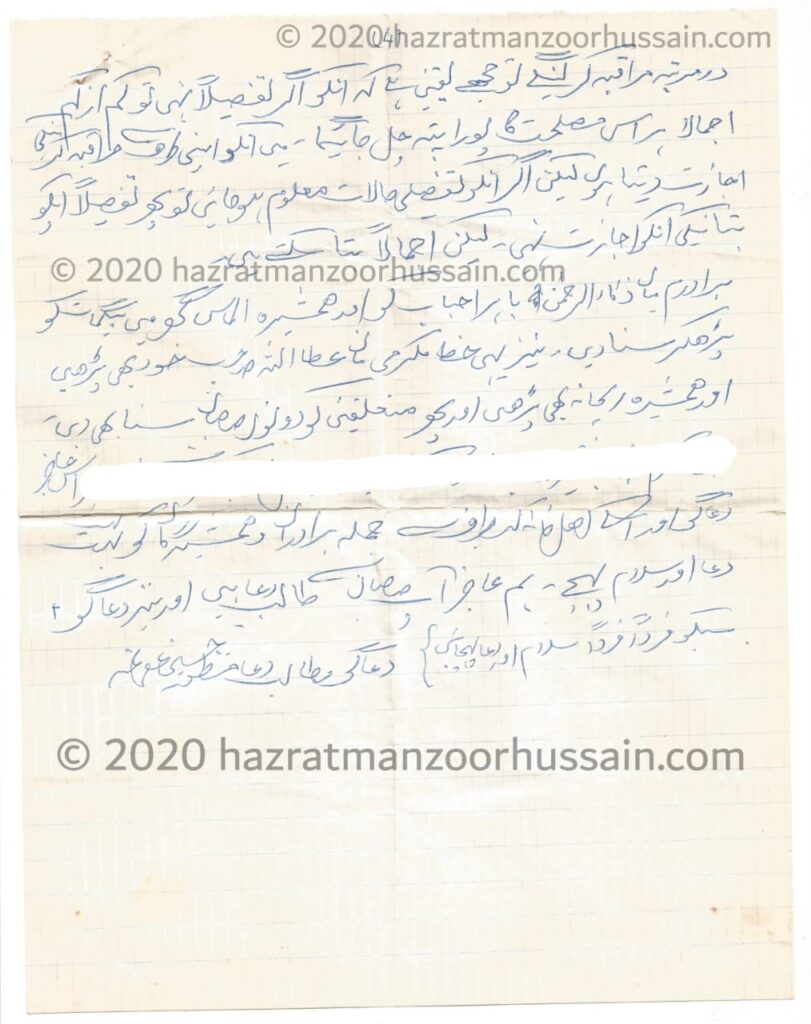 © 2020 hazratmanzoorhussain.com
(4)
دو مرتبہ مراقبہ کر لینگے تو مجھے یقین ہے کہ انکو اگر تفصیلاً نہی تو کم از کم
اجمالا ہر اس مصلحت کا پورا پتہ چل جائیگا۔ میں انکو اپنی طرف سے مراقبہ کرنیکی
اجازت دیتا ہوں لیکن اگر انکو تفصیلی حالات معلوم ہو جائیں تو پھر تفصیلاً آپکو
بتانیکی انکو اجازت نہی۔ لیکن اجمالاً بتا سکتے ہیں۔
© 2020 hazratmanzoorhussain.com
برادرم میاں ذکاء الرحمن باہر احباب کو اور ہمشیرہ الماس گھر میں بیگمات کو
پڑھکر سنا دیں۔ نیز یہی خط مکرمی خان عطا اللہ صاحب خود بھی پڑھیں
اور ہمشیرہ ریحانہ بھی پڑھیں اور پھر متعلقین کو دونوں صاحبان سنا بھی دیں۔
اس عاجز
دعاگو اور اسکے اہل خانہ کی طرف سے جملہ برادران و ہمشیرگان کو بہت بہت
دعا اور سلام پہنچے۔ ہم عاجز آپ صاحبان سے طالب دعا ہیں اور نیز دعاگو۔
سبکو فرداً فرداً سلام اور دعا پہنچائیں } دعاگو و طالب دعا منظور حسین عفی عنہ
© 2020 hazratmanzoorhussain.com